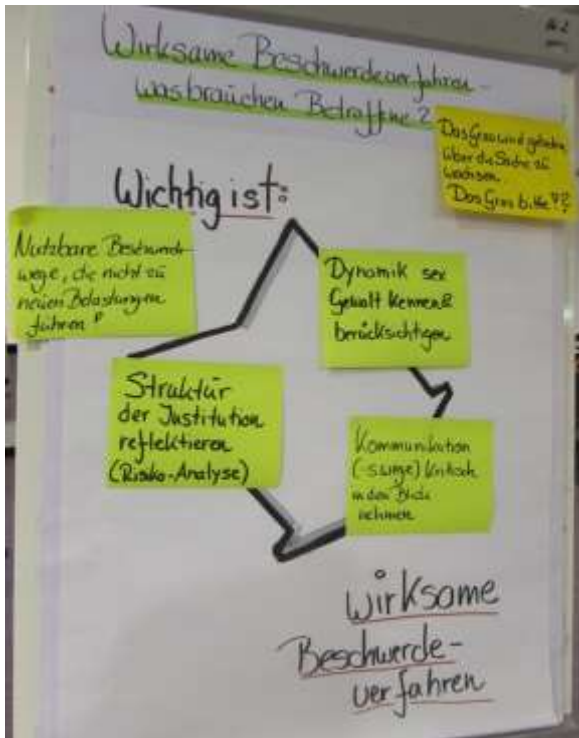 Wirksame Beschwerdeverfahren -
was brauchen Betroffne?
Das Gras wird gebeten
über die Sache zu
wachsen.
Das Gras bitte!?
Wichtig ist:
Nutzbare Beschwerde-
wege, die nicht zu
neuen Belastungen
führen!
Dynamik sex
Gewalt kennen &
berücksichtgen
Struktur
der Institution
reflektieren
(Risiko-Analyse)
Kommunikation
(-swege) kritisch
in den Blick
nehmen
wirksame
Beschwerde-
verfahren